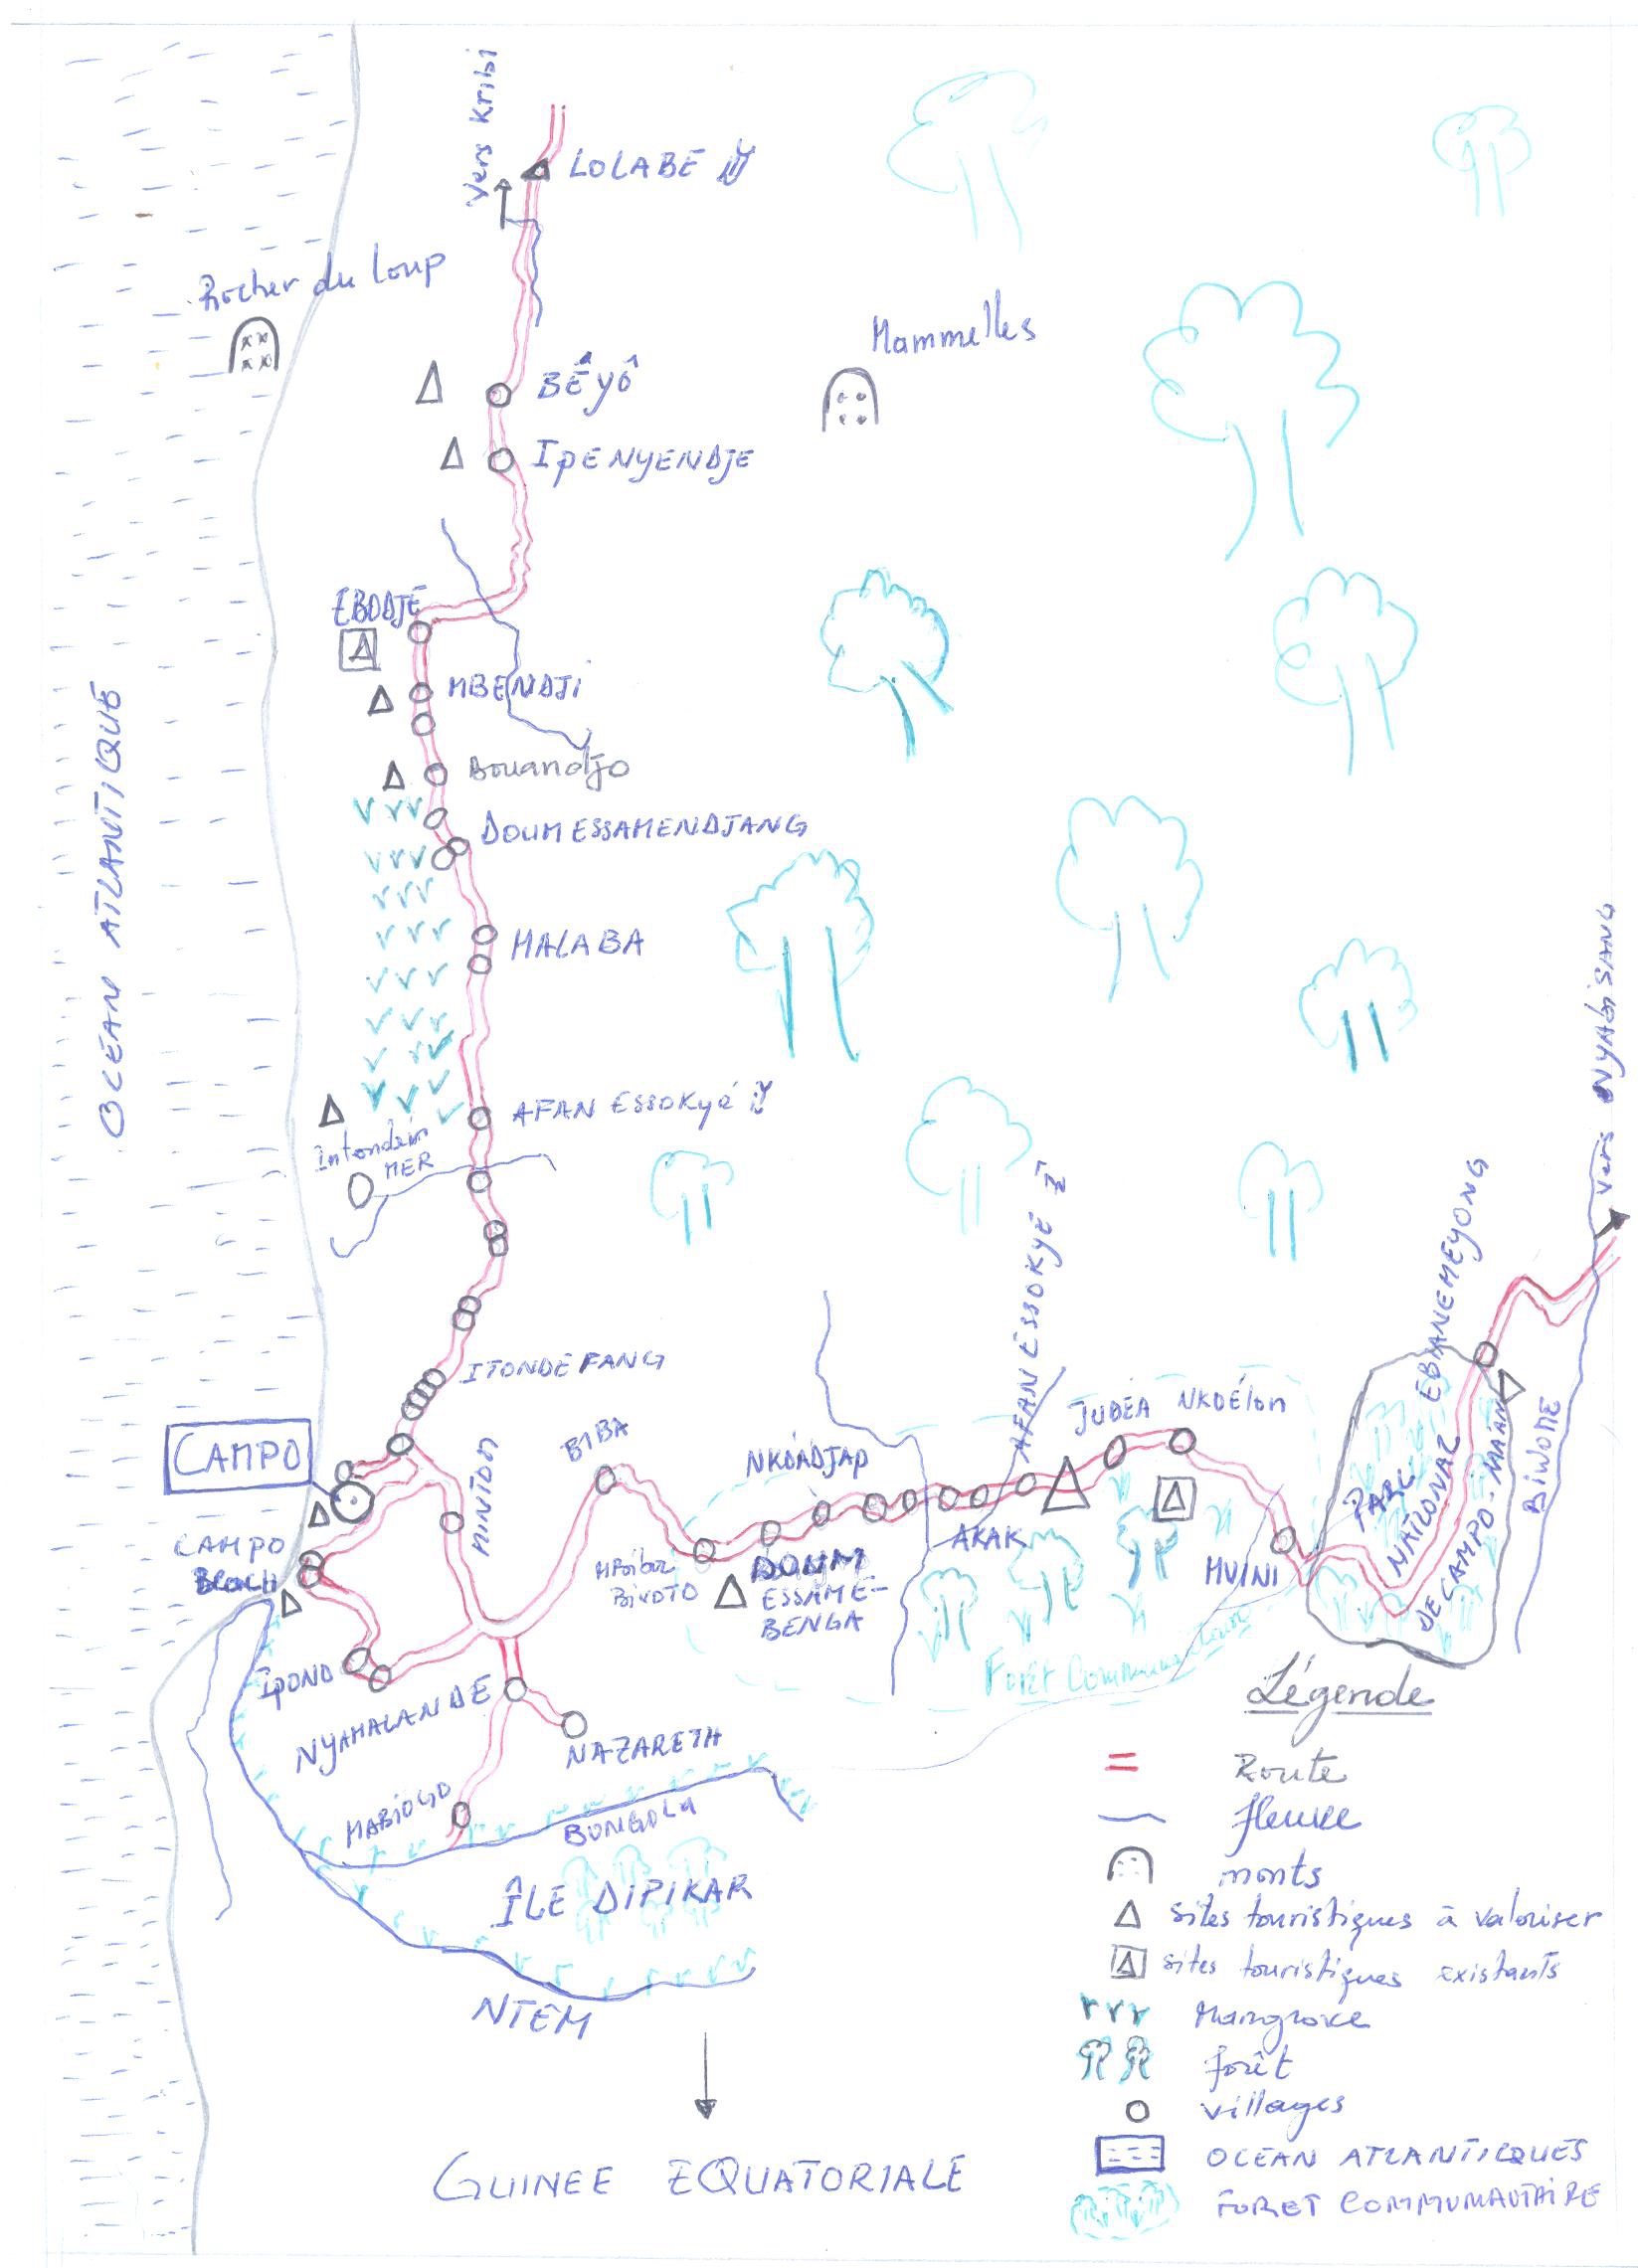 vers Kribi
LOLABE
Rocher du Loup
Mammelles
BÉYÔ
IPENYENDJE
EBODJE
MBENDJI
Bouandjo
DOUM ESSAMENDJANG
OCEAN ATLANTIQUE
MALABA
AFAN ESSOKYÉ
MER
vers NYABISANG
AFAN ESSOKYE I
EBIANEMEYONG
ITONDE FANG
CAMPO
MINTOM
BIBA
NKOADJAP
JUDEA
NKOÉLON
PARC
NATIONAL
DE CAMPO-MAAN
BIWOME
CAMPO
Beach
AKAK
MVINI
DOUM
ESSAME-
BENGA
IPONO
NYAMALANDE
NAZARETH
Forêt
MABIOGO
BONGOLA
ÎLE DIPIKAR
NTEM
GUINEE EQUATORIALE
Légende
Route
fleuve
monts
sites touristiques à valoriser
sites touristiques existants
Mangrove
forêt
villages
OCEAN ATLANTICQUES
FORET COMMUNAUTAIRE